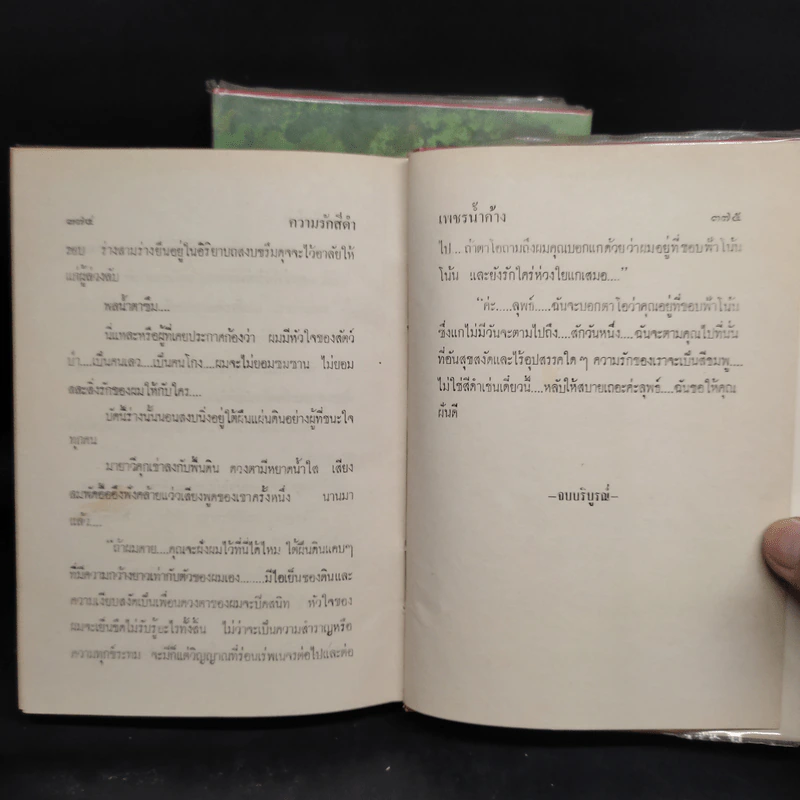 ๓๗๔ ความรักสีดำ
รอบ ร่างสามร่างยืนอยู่ในอิริยาบถสงบขรึมดุจจะไว้อาลัยให้
แด่ผู้ล่วงลับ
พสน้ำตาซึม....
นี่แหละหรือผู้ที่เคยประกาศก้องว่า ผมมีหัวใจของสัตว์
ป่า....เป็นคนเลว....เป็นคนโกง....ผมจะไม่ยอมซมซาน ไม่ยอม
สละสิ่งรักของผมให้กับใคร....
บัดนี้ร่างนั้นนอนสงบนิ่งอยู่ใต้ผืนแผ่นดินอย่างผู้ที่ชนะใจ
ทุกคน
มายาวีคุกเข่าลงกับพื้นดิน ดวงตามีหยาดน้ำใส เสียง
ลมพัดอื้ออึงฟังคล้ายแว่วเสียงพูดของเขาครั้งหนึ่ง นานมา
แล้ว....
"ถ้าผมตาย....คุณจะฝังผมไว้ที่นี่ได้ไหม ใต้ผืนดินแคบๆ
ที่มีความกว้างยาวเท่ากับตัวของผมเอง........มีไอเย็นของดินและ
ความเงียบสงัดเป็นเพื่อนดวงตาของผมจะปิดสนิท หัวใจของ
ผมจะเย็นชืดไม่รับรู้อะไรทั้งสิ้น ไม่ว่าจะเป็นความสำราญหรือ
ความทุกข์ระทม จะมีก็แต่วิญญาณที่ร่อนเร่พเนจรต่อไปและต่อ
เพชรน้ำค้าง ๓๗๕
ไป .. ถ้าตาโอถามถึงผมคุณบอกแกด้วยว่าผมอยู่ที่ขอบฟ้าโน้น
โน้น และยังรักใคร่ห่วงใยแกเสมอ...."
"ค่ะ.....ลุพธ์....ฉันจะบอกตาโอว่าคุณอยู่ที่ขอบฟ้าโน้น
ซึ่งแกไม่มีวันจะตามไปถึง....สักวันหนึ่ง....ฉันจะตามคุณไปที่นั่น
ที่อันสุขสงัดและไร้อุปสรรคใดๆ ความรักของเราจะเป็นสีชมพู....
ไม่ใช่สีดำเช่นเดี๋ยวนี้....หลับให้สบายเถอะค่ะลุพธ์....ฉันขอให้คุณ
ฝันดี
–จบบริบูรณ์–